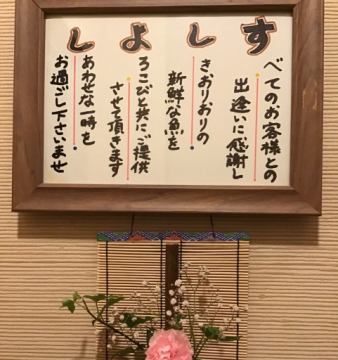 すしよし
べてのお客様との
出逢いに感謝し
きおりおりの
新鮮な魚を
ろこびと共にご提供
させて頂きます
あわせな一時を
お過ごし下さいませ